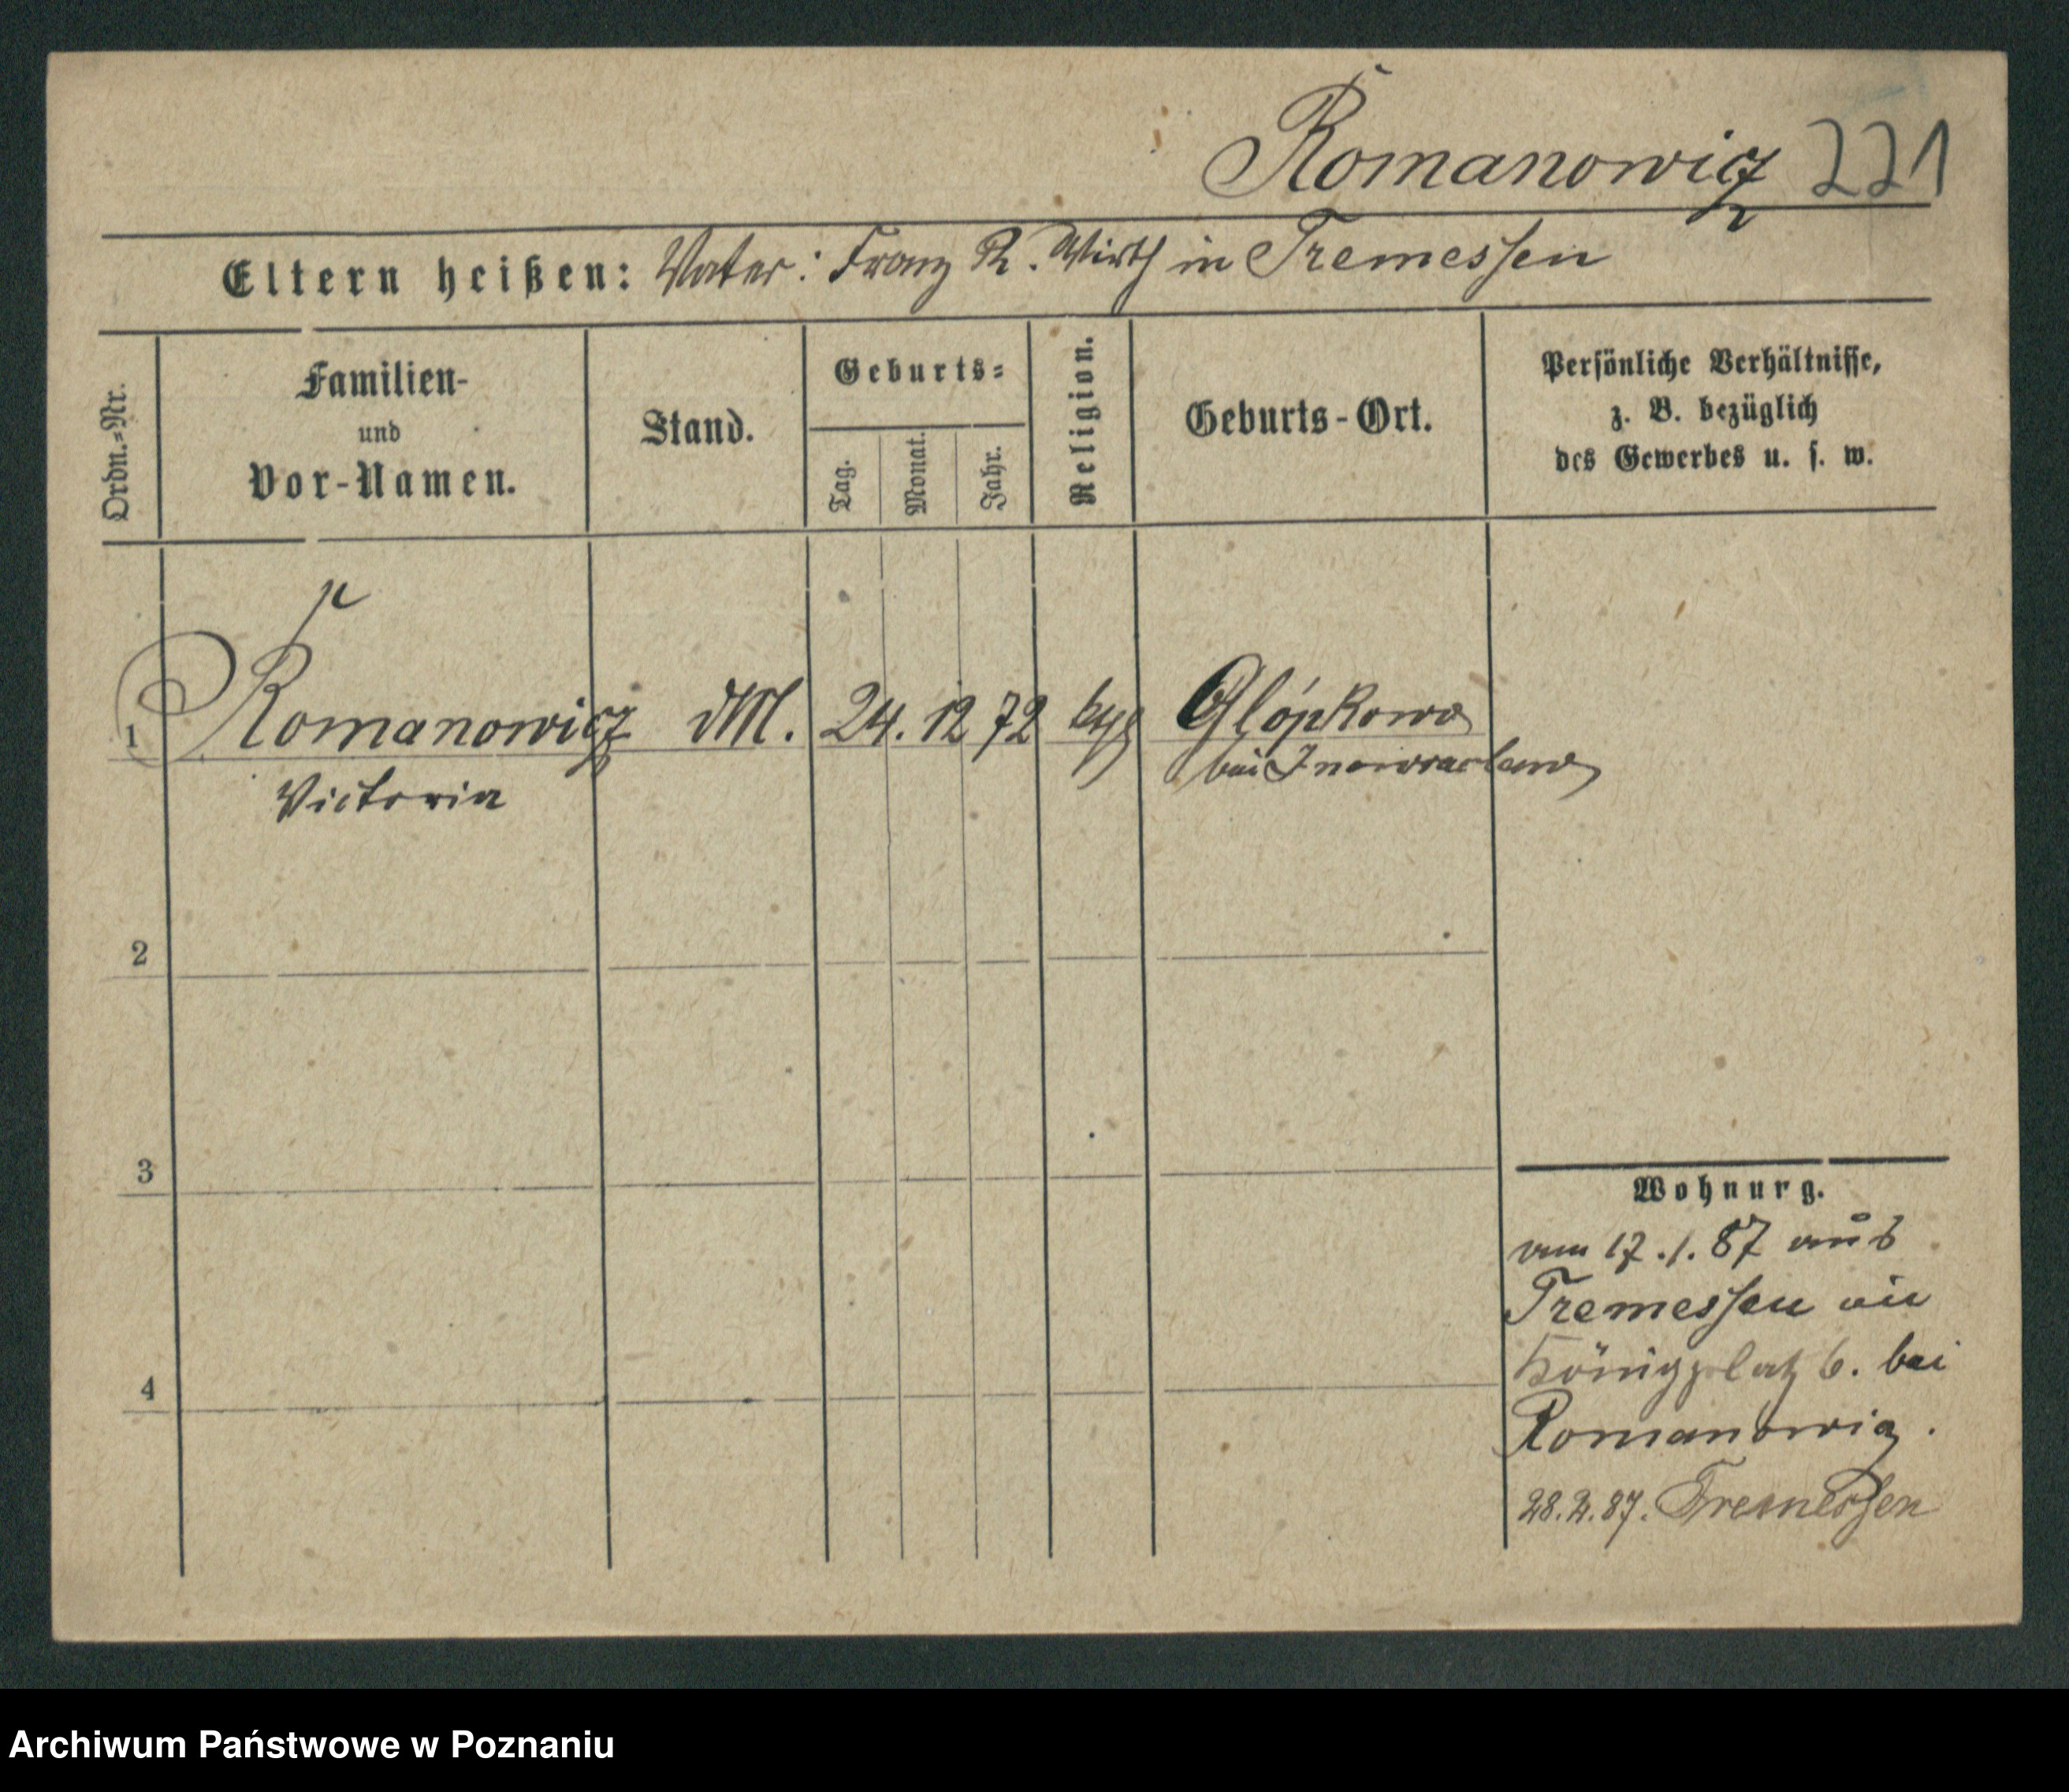 Romanowicz 221
Eltern heißen: Vater: Franz R. Wirth in Tremessen
Ordn.-Nr.
Familien-
und
Vor-Namen.
Stand.
Geburts-
Tag.
Monat.
Jahr.
Religion.
Geburts-Ort.
Persönliche Verhältnisse,
z. B. bezüglich
des Gewerbes u. s. w.
1 Romanowicz dM. 24. 12 72 Glópkowo
bei Inowraclaw
Victoria
2
3
4
Wohnurg.
vom 17.1.87 aus
Tremessen
Königsplatz 6. bei
Romanowicz.
28.2.87. Tremessen
Archiwum Państwowe w Poznaniu